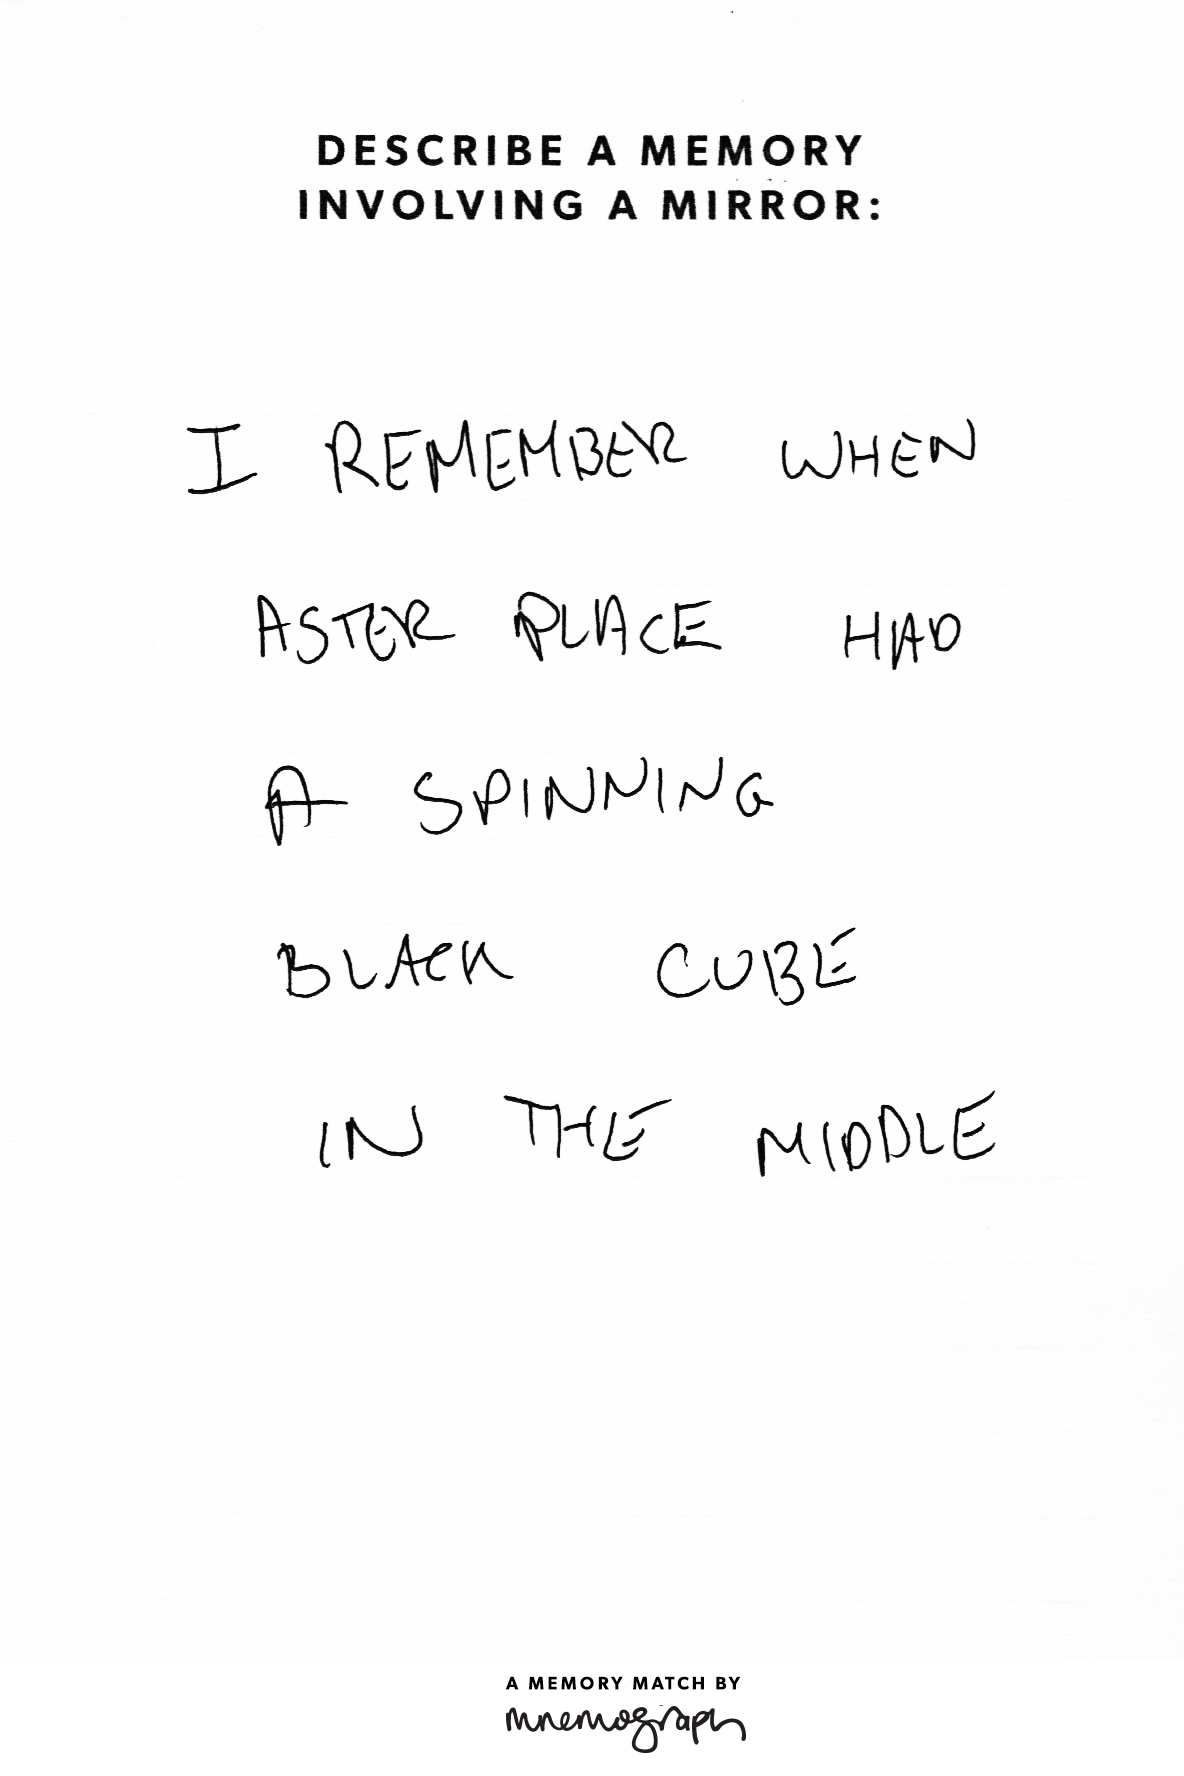 DESCRIBE A MEMORY
INVOLVING A MIRROR:
I REMEMBER WHEN
ASTER PLACE HAD
A SPINNING
BLACK CUBE
IN THE MIDDLE
A MEMORY MATCH BY
mnemograph